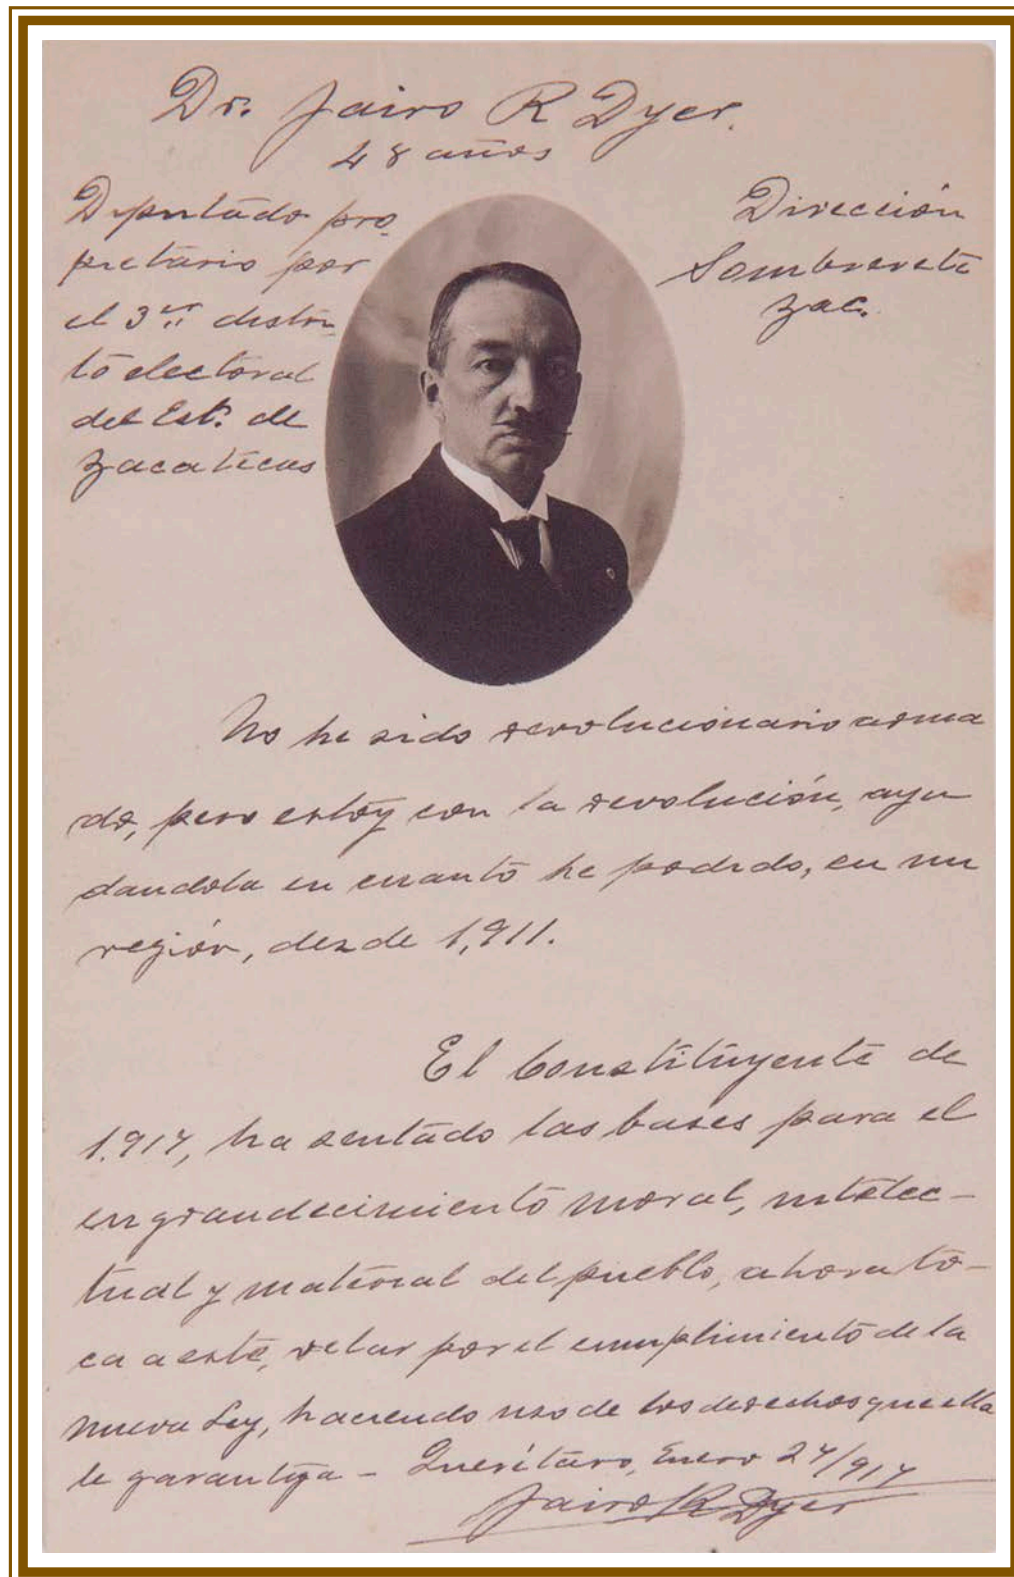 Dr. Jairo R Dyer.
48 años
Diputado pro
pietario por
el 3er distri
to electoral
del Est. de
Zacatecas
Dirección
Sombrerete
Zac.
No he sido revolucionario arma
do, pero estoy con la revolución, ayu
dandola en cuanto he podido, en mi
región, desde 1,911.
El Constituyente de
1.917, ha sentado las bases para el
engrandecimiento moral, intelec-
tual y material del pueblo, ahora to-
ca a este, velar por el cumplimiento de la
nueva Ley, haciendo uso de los derechos que ella
le garantiza - Querétaro, Enero 27/917
Jairo R Dyer